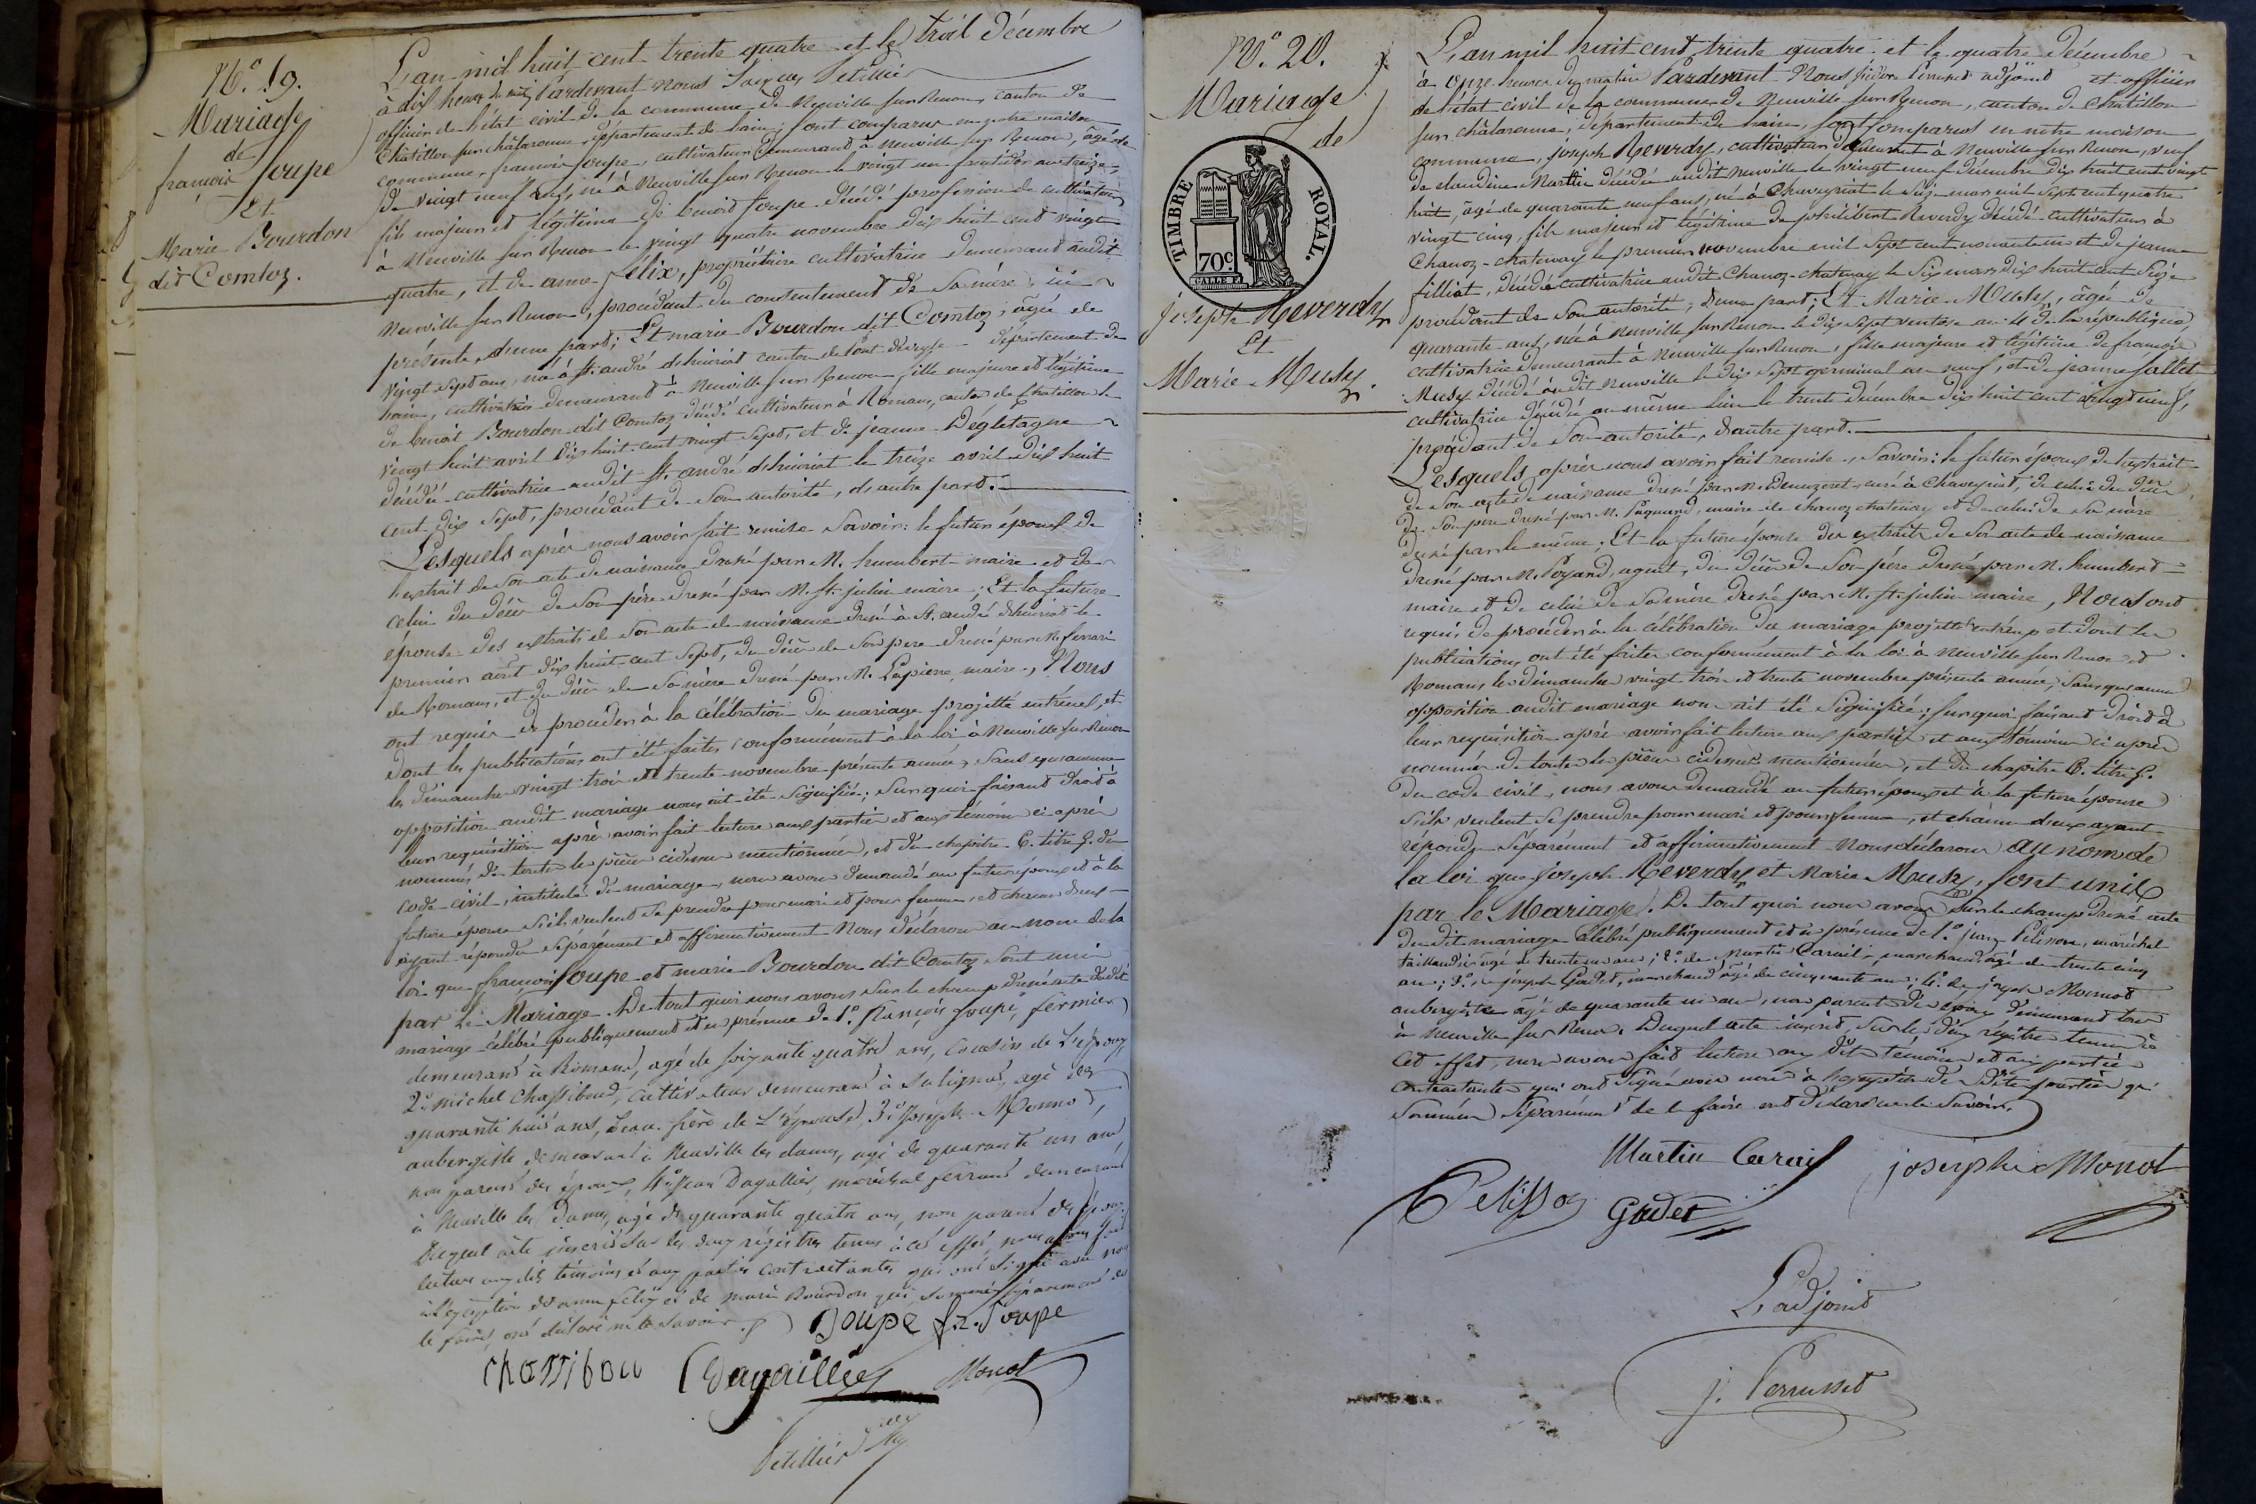 N.o 19.
Mariage
de
françois Soupe
Et
Marie Bourdon
dit Comtoz.
L'an mil huit cent trente quatre et le trois décembre
à dix heures du matin Pardevant nous Jacques Petillier
officier de l'état civil de la commune de Neuville sur Renon, canton de
Châtillon sur chalaronne, département de l'ain; sont comparus en notre maison
commune, françois Soupe, cultivateur demeurant à Neuville sur Renon, âgé de
de vingt neuf ans, né à Neuville sur Renon le vingt un fructidor an treize,
fils majeur et légitime de benoit Soupe décédé profession de cultivateur
à Neuville sur Renon le vingt quatre novembre dix huit cent vingt
quatre, et de anne félix, propriétaire cultivatrice demeurant audit
Neuville sur Renon, procédant du consentement de sa mère, ici
présente, d'une part; Et marie Bourdon dit Comtoz, âgée de
vingt sept ans, née à St. andré d'huiriat canton de Pont de veyle département de
l'ain, cultivatrice demeurant à Neuville sur Renon fille majeure et légitime
de benoit Bourdon dit Comtoz décédé cultivateur à Romans, canton de Chatillon le
vingt huit avril dix huit cent vingt sept, et de jeanne Dégletagne
décédée cultivatrice audit St. andré d'huiriat le treize avril dix huit
cent dix sept, procédant de son autorité, d'autre part.
Lesquels après nous avoir fait remise savoir: le futur époux de
l'extrait de son acte de naissance dressé par M. humbert maire et de
celui du décès de son père dressé par M. St. julien maire; Et la future
épouse des extraits de son acte de naissance dressé à St. andré d'huiriat le
premier août dix huit cent sept, du décès de son père dressé par M. ferrari
de Romans, et du décès de sa mère dressé par M. Lapierre maire, Nous
ont requis de procéder à la célébration du mariage projetté entr'eux, et
dont les publications ont été faites conformément à la loi à Neuville sur Renon
les dimanches vingt trois et trente novembre présente année, sans qu'aucune
opposition audit mariage nous ait été signifiée; sur quoi faisant droit à
leur requisition après avoir fait lecture aux parties et aux témoins ci après
nommés de toutes les pièces cidessus mentionnées, et du chapitre 6. titre 5. du
code civil, intitulé du mariage, nous avons demandé au futur époux et à la
future épouse s'ils veulent se prendre pour mari et pour femme, et chacun d'eux
ayant répondu séparément et affirmativement Nous déclarons au nom de la
loi que françois Soupe et marie Bourdon dit Comtoz sont unis
par le Mariage. De tout quoi nous avons sur le champ dressé acte dudit
mariage célébré publiquement et en présence de 1.o François Soupe, fermier
demeurant à Romans, agé de soixante quatre ans, cousin de l'époux
2.o michel Chassibout, cultivateur demeurant à Sulignat, agé de
quarante huit ans, beau frère de l'épouse, 3.o joseph Monnot,
aubergiste demeurant à Neuville les dames, agé de quarante un ans
non parent des époux, 4.o Jean Dagallier, maréchal ferrant demeurant
à Neuville les Dames, agé de quarante quatre ans, non parent des époux.
Duquel acte inscrit sur les deux régistres tenus à cet effet, nous avons fait
lecture auxdits témoins et aux parties contractantes qui ont signé avec nous
à l'exception de anne felix et de marie Bourdon qui, sommés séparement de
le faire, ont déclaré ne le savoir.
Soupe fr. Soupe
chassibou Dagaillier Monot
Petillier
N.o 20.
Mariage
de
TIMBRE ROYAL.
70c.
joseph Reverdy
Et
Marie Musy.
L'an mil huit cent trente quatre et le quatre décembre
à onze heures du matin Pardevant Nous adjoint et officier
de l'état civil de la commune de Neuville sur Renon, canton de Chatillon
sur chalaronne, département de l'ain, sont comparus en notre maison
commune, joseph Reverdy, cultivateur demeurant à Neuville sur Renon, veuf
de claudine Martin décédée audit Neuville le vingt neuf décembre dix huit cent vingt
huit, âgé de quarante neuf ans, né à Chaveyriat le six mars mil sept cent quatre
vingt cinq, fils majeur et légitime de philibert Reverdy décédé cultivateur à
Chanoz-chatenay le premier novembre mil sept cent nonante et de jeanne
filliat, décédée cultivatrice audit Chanoz-chatenay le six mars dix huit cent seize
procédant de son autorité, d'une part; Et Marie Musy, âgée de
quarante ans, née à Neuville sur Renon le dix sept ventose an 4 de la république,
cultivatrice demeurant à Neuville sur Renon, fille majeure et légitime de françois
Musy décédé audit Neuville le dix sept germinal an neuf, et de jeanne Sallet
cultivatrice décédée au même lieu le trente décembre dix huit cent vingt neuf,
procédant de son autorité, d'autre part.
Lesquels après nous avoir fait remise, savoir: le futur époux de l'extrait
de son acte de naissance dressé par M. curé à Chaveyriat, de celui du décès
de son père dressé par M. maire de Chanoz chatenay et de celui de sa mère
dressé par le même; Et la future épouse des extraits de son acte de naissance
dressé par M. Poyard, agent, du décès de son père dressé par M. humbert
maire et de celui de sa mère dressé par M. St. julien maire, Nous ont
requis de procéder à la célébration du mariage projetté entr'eux et dont les
publications ont été faites conformément à la loi à Neuville sur Renon et
Romans les dimanches vingt trois et trente novembre présente année, sans qu'aucune
opposition audit mariage nous ait été signifiée; sur quoi faisant droit à
leur requisition après avoir fait lecture aux parties et aux témoins ci après
nommés de toutes les pièces cidessus mentionnées, et du chapitre 6. titre 5.
du code civil, nous avons demandé au futur époux et à la future épouse
s'ils veulent se prendre pour mari et pour femme, et chacun d'eux ayant
répondu séparément et affirmativement Nous déclarons au nom de
la loi que joseph Reverdy et Marie Musy, sont unis
par le Mariage. De tout quoi nous avons sur le champ dressé acte
du dit mariage célébré publiquement et en présence de 1.o Pelisson, maréchal
taillandier agé de trente un ans; 2.o de Martin Carail, marchand agé de trente cinq
ans; 3.o joseph Gadet, marchand agé de cinquante ans; 4.o de joseph Monnot
aubergiste agé de quarante un ans, non parents des époux demeurant tous
à Neuville sur Renon. Duquel acte inscrit, sur les deux registres tenus à
cet effet, nous avons fait lecture aux dits témoins et aux parties
contractantes qui ont signé avec nous à l'exception des dites parties qui
sommées séparément de le faire ont déclaré ne le savoir.
Martin Carail joseph Monot
Pelisson Gadet
L'adjoint
j. Perrusset